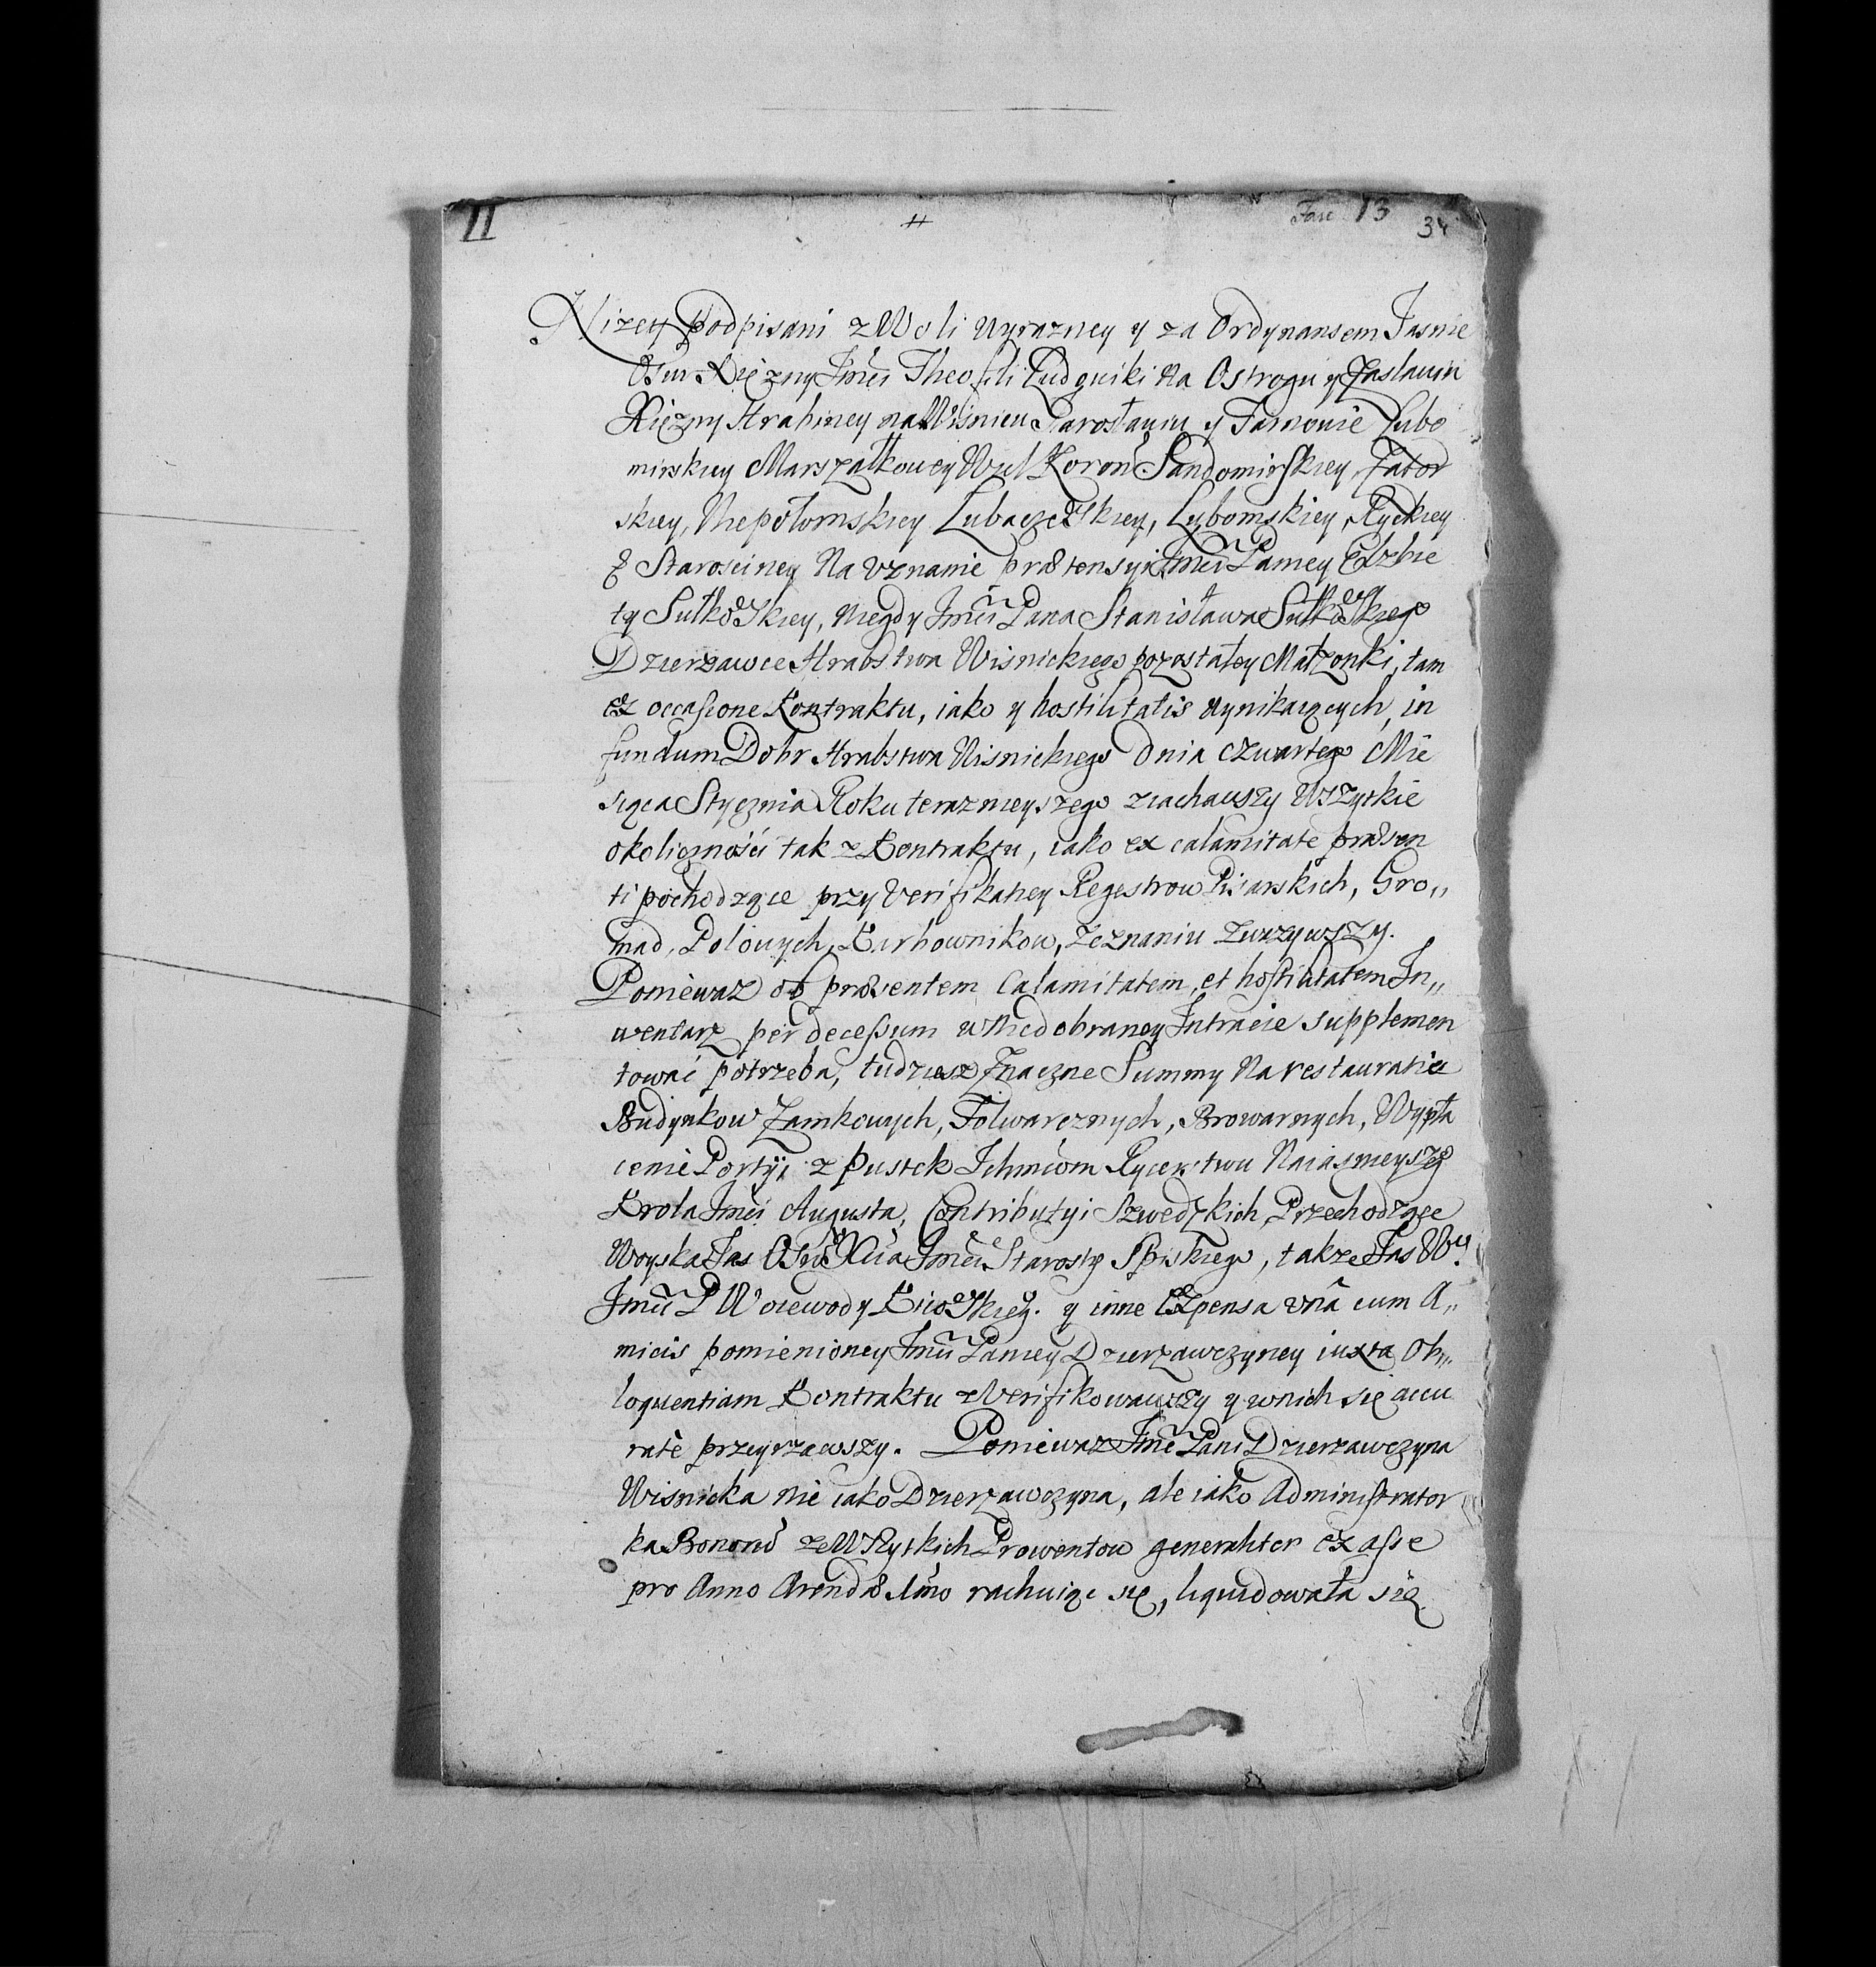 II # Fasc 13 34
Nizey Podpisani z Woli Wyrazney y za Ordynansem Jasnie
Oswr Xięzny Jmći Theofili Ludgwiki Na Ostrogu y Zaslawiu
Xięzny Hrabiney na Wisniczu Jarosławiu y Tarnowie Lubo
mirskiey Marszałkowey Wiel Koron Sandomirskiey, Zator
skiey, Niepołomskiey Lubaczewskiey, Lybomskiey, Ryckiey
& Starosciney Na Vznanie prætensyi Jmći Paniey Elzbie
ty Sułkowskiey, Niegdy Jmći Pana Stanisława Sułkowskiego
Dzierzawce Hrabstwa Wisnickiego pozostałey Małzonki, tam
ex occasione Kontraktu, iako y hostilitatis wynikaiących, in
fundum Dobr Hrabstwa Wisnickiego Dnia czwartego Mie
siąca Stycznia Roku teraznieyszego ziachawszy Wszytkie
okolicznośći tak z Kontraktu, iako ex calamitate præsen
ti pochodzące przy Verifikatiey Regestrow Pisarskich, Gro„
mad, Polowych, Karbownikow, Zeznaniu Zwazywszy.
Poniewaz ob præsentem Calamitatem, et hostilitatem In„
wentarz per decessum w Niedobraney Intracie supplemen
tować potrzeba, tudziesz Znaczne Summy Na restauratią
Budynkow Zamkowych, Folwarcznych, Browarnych, Wypła
cenie Portyi z pustek Ichmćiom Rycerstwu Naiasnieyszeo
Krola Jmći Augusta, Contributyi Szwedzkich Przechodzące
Woyska Jas Oswr Xcia Jmći Starosty Spiskiego, takze Jas Wo
Jmći P Woiewody Kiiowskieg. y inne Expensa vna cum A„
micis pomienioney Jmći Paniey Dzierzawczyney iuxta Ob„
loquentiam Kontraktu zVerifikowawszy y wnich się accu
rate przeyrzawszy. Poniewaz Jmć Pani Dzierzawczyna
Wisnicka nie iako Dzierzawczyna, ale iako Administrator
ka Bonoru zeWszytkich Prowentow generaliter ex asse
pro Anno Arendæ 1mo rachuiąc się, liquidowała się